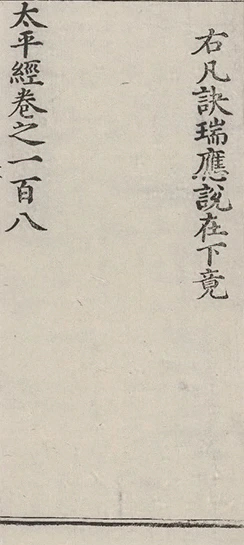 右凡訣瑞應說在下竟
太平經卷之一百八